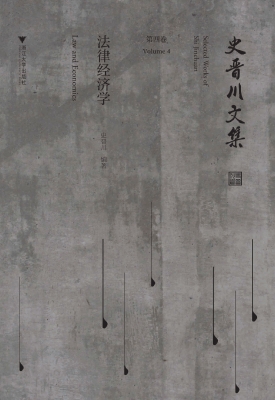 史晋川文集
Selected Works of
Shi Jinchuan
第四卷
Volume 4
法律经济学
Law and Economics
史晋川 编著
浙江大学出版社